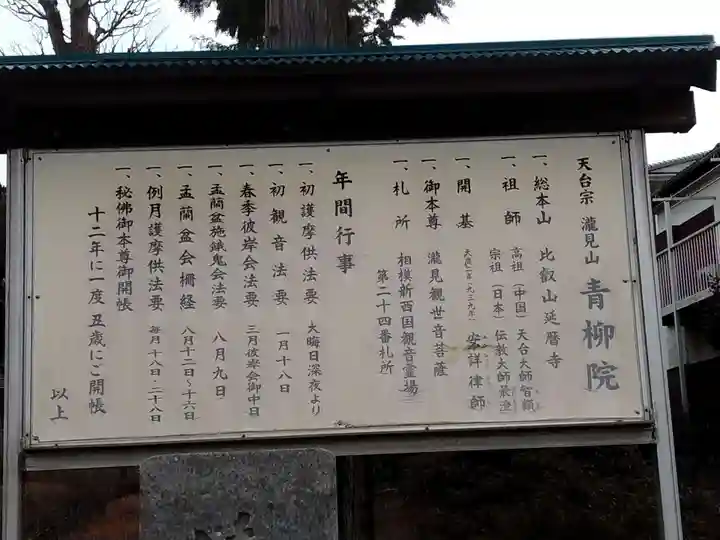 天台宗 瀧見山 青柳院
一、総本山 比叡山延暦寺
一、祖師 高祖(中国)天台大師智顗
宗祖(日本)伝教大師最澄
一、開基 安詳律師
一、御本尊 瀧見観世音菩薩
一、札所 相模新西国観音霊場
第二十四番札所
年間行事
一、初護摩供法要 大晦日深夜より
一、初観音法要 一月十八日
一、春季彼岸会法要 三月彼岸会御中日
一、盂蘭盆施餓鬼会法要 八月九日
一、盂蘭盆会棚経 八月十二日〜十六日
一、例月護摩供法要 毎月十八日・二十八日
一、秘佛御本尊御開帳
十二年に一度 丑歳にご開帳
以上